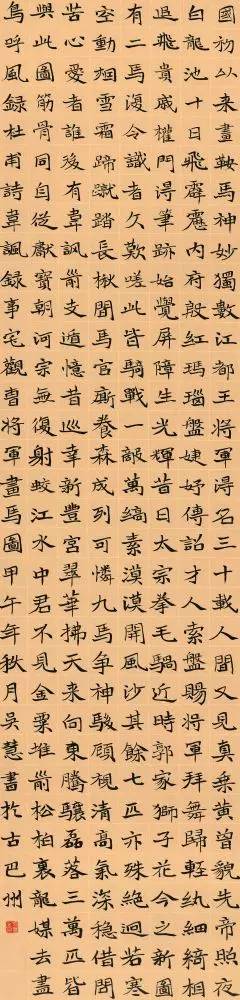 國初以来畫鞍馬神妙獨數江都王將軍淂名三十載人間又見真乗黄曾貌先帝照夜
白龍池十日飛霹靂内府殷紅瑪瑙盤婕妤傳詔才人索盤賜将軍拜舞歸輕紈細綺相
追飛貴戚權門淂筆跡始覺屏障生光輝昔日太宗拳毛騧近時郭家獅子花今之新圖
有二馬復令識者久歎嗟此皆騎戰一敵萬縞素漠漠開風沙其餘七匹亦殊絕迥若寒
空動烟雪霜蹄蹴踏長楸間馬官廝養森成列可憐九馬争神駿顧視清高氣深穩借問
苦心愛者誰後有韋諷前支遁憶昔巡幸新豐宮翠華拂天来向東騰驤磊落三萬匹皆
與此圖筋骨同自從獻寳朝河宗無復射蛟江水中君不見金粟堆前松柏裏龍媒去盡
鳥呼風録杜甫詩韋諷録事宅觀曹將軍畫馬圖甲午年秋月吳慧書於古巴州